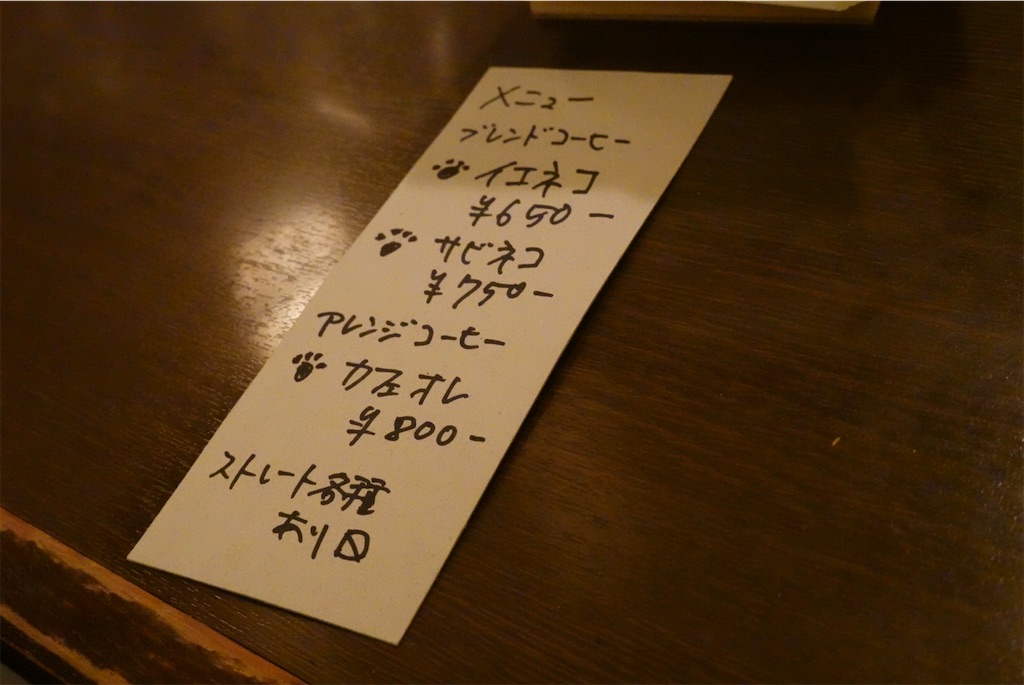 メニュー
ブレンドコーヒー
イエネコ
¥650-
サビネコ
¥750-
アレンジコーヒー
カフェオレ
¥800-
ストレート各種
あり〼